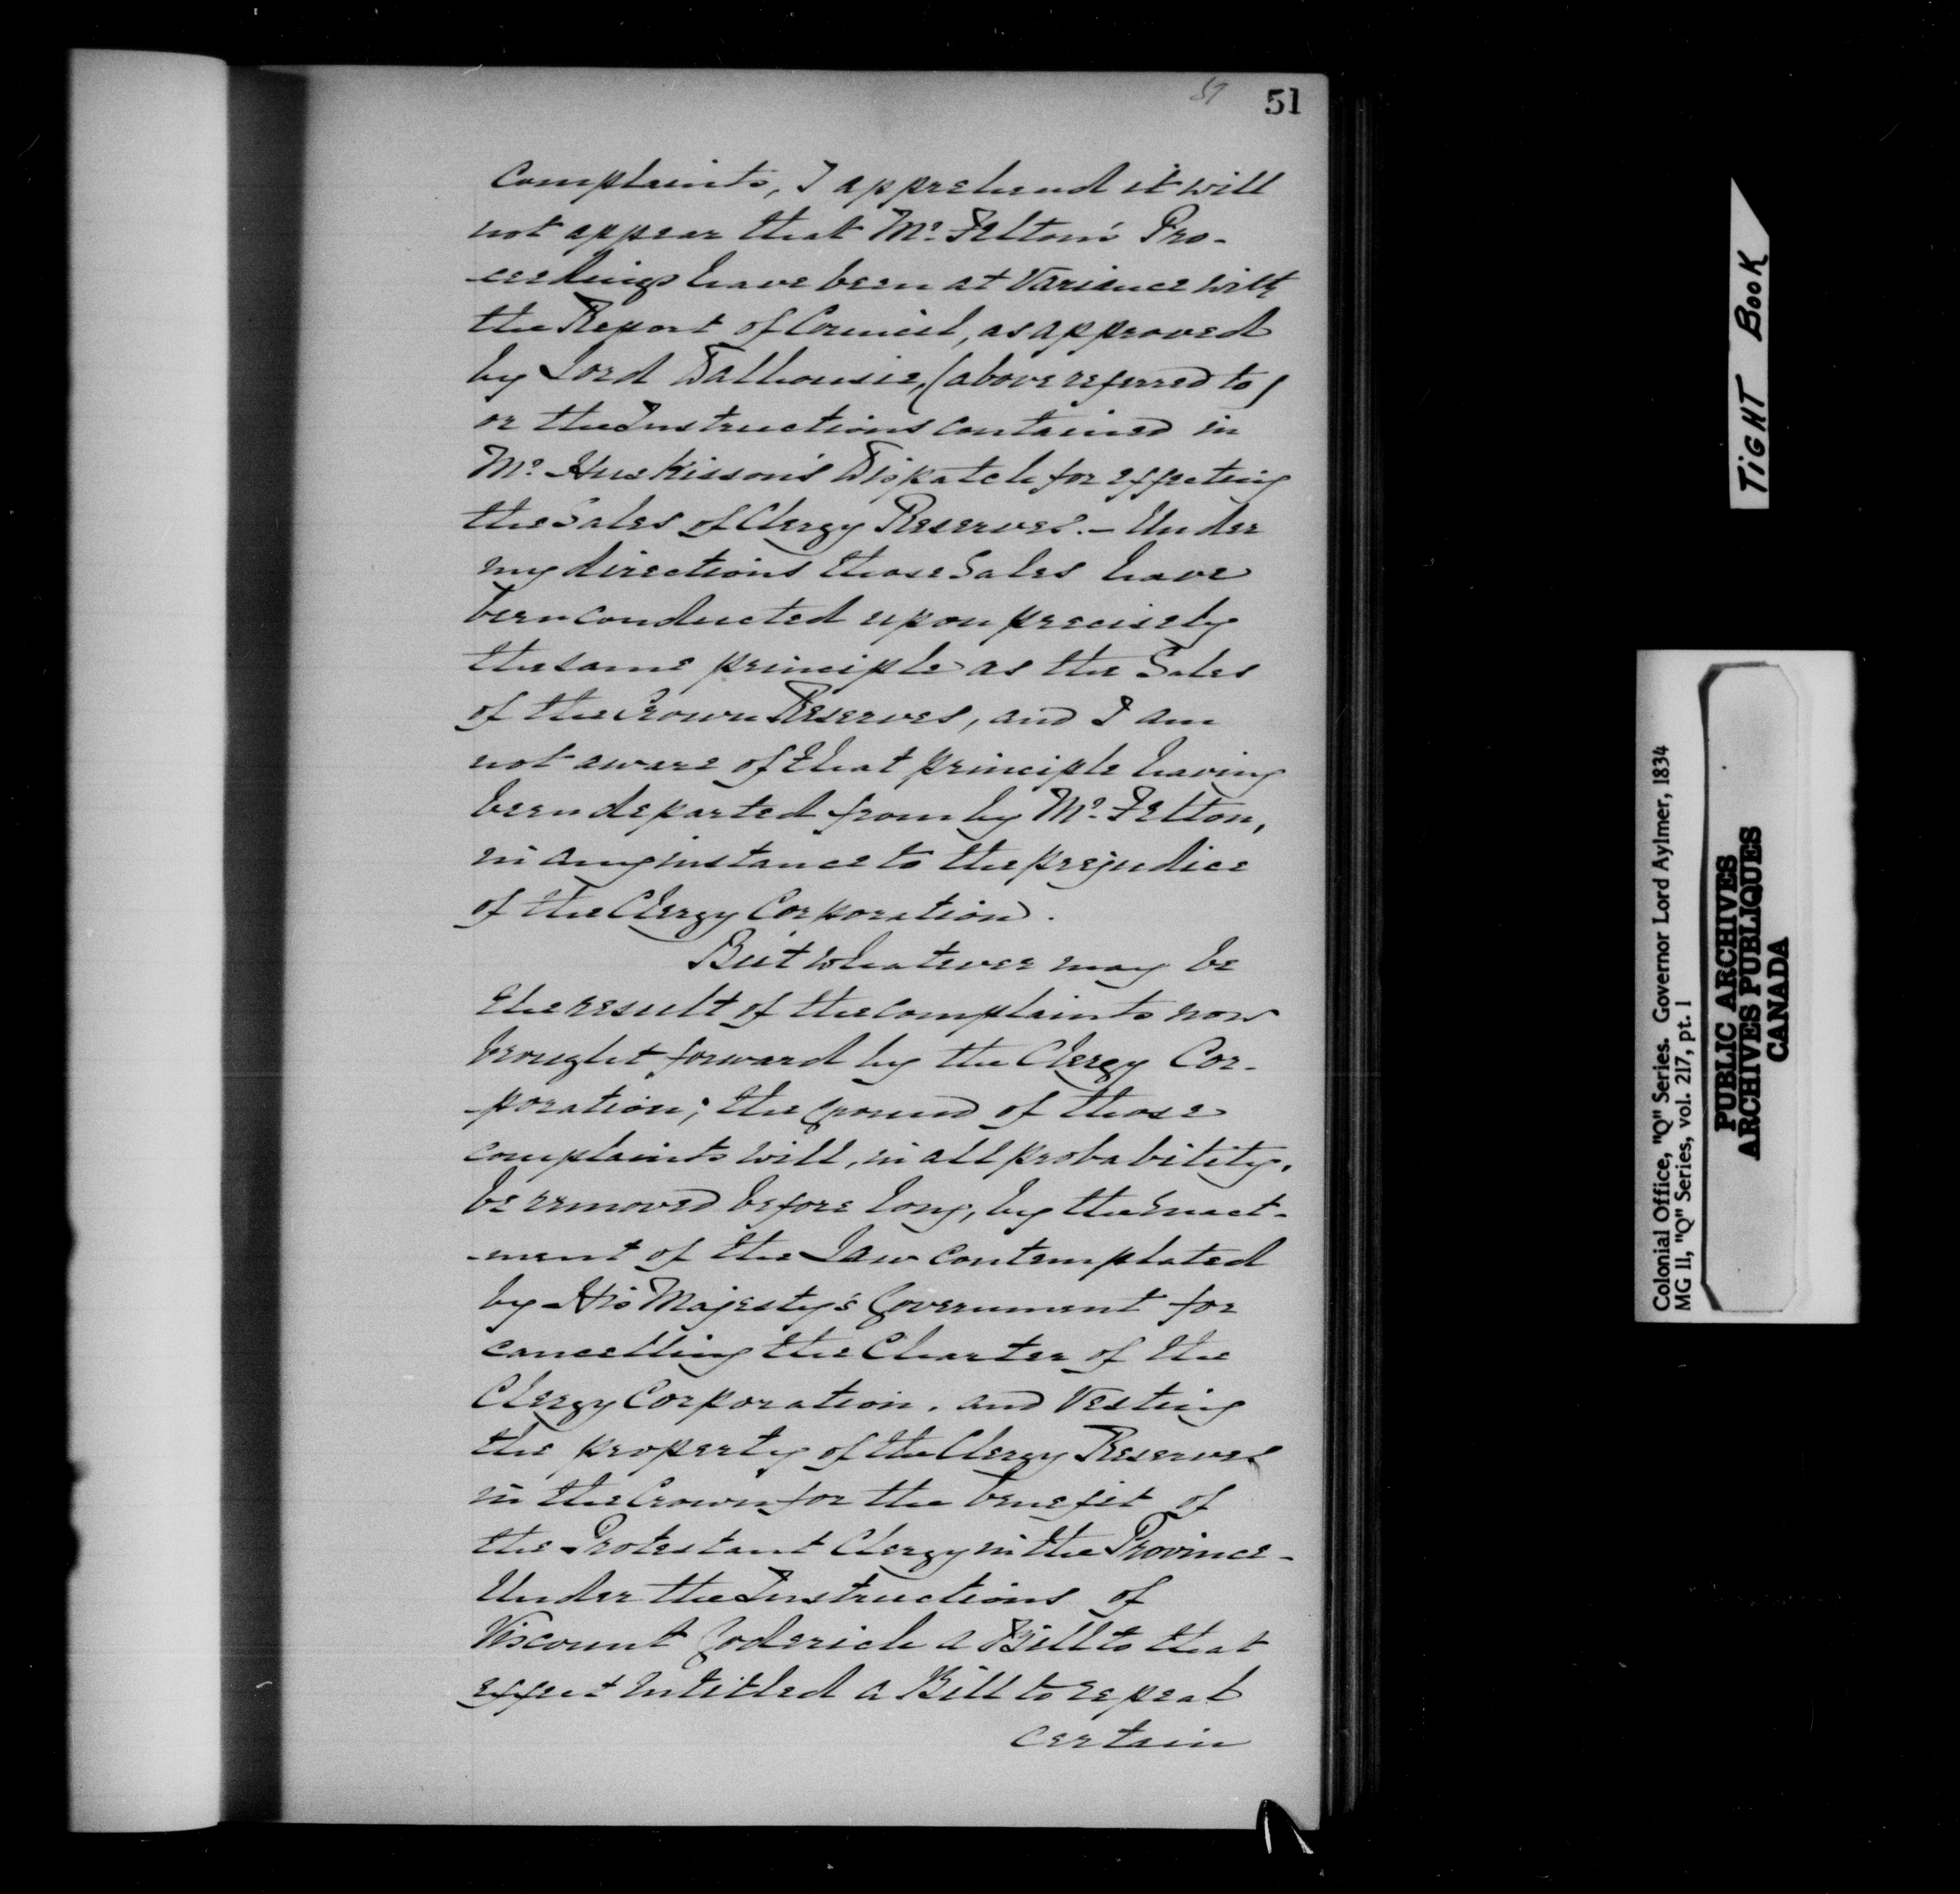 51
51
complaints, I apprehend it will
not appear that Mr. Felton's Pro-
-ceedings have been at Variance with
the Report of Council, as approved
by Lord Dalhousie, (above referred to)
or the Instructions contained in
Mr. Huskisson's Dispatch for effecting
the Sales of Clergy Reserves. - Under
my directions those Sales have
been conducted upon precisely
the same principle as the Sales
of the Crown Reserves, and I am
not aware of that principle having
been departed from by Mr. Felton,
in any instance to the prejudice
of the Clergy Corporation.
But whatever may be
the result of the complaints now
brought forward by the Clergy Cor-
-poration; the ground of those
complaints will, in all probability,
be removed before long, by the Enact-
-ment of the Law contemplated
by His Majesty's Government for
cancelling the Charter of the
Clergy Corporation, and Vesting
the property of the Clergy Reserves
in the Crown for the benefit of
the Protestant Clergy in the Province -
Under the Instructions of
Viscount Goderich a Bill to that
effect Intitled a Bill to repeal
certain
TIGHT BOOK
Colonial Office, "Q" Series. Governor Lord Aylmer, 1834
MG 11, "Q" Series, vol. 217, pt. 1
PUBLIC ARCHIVES
ARCHIVES PUBLIQUES
CANADA